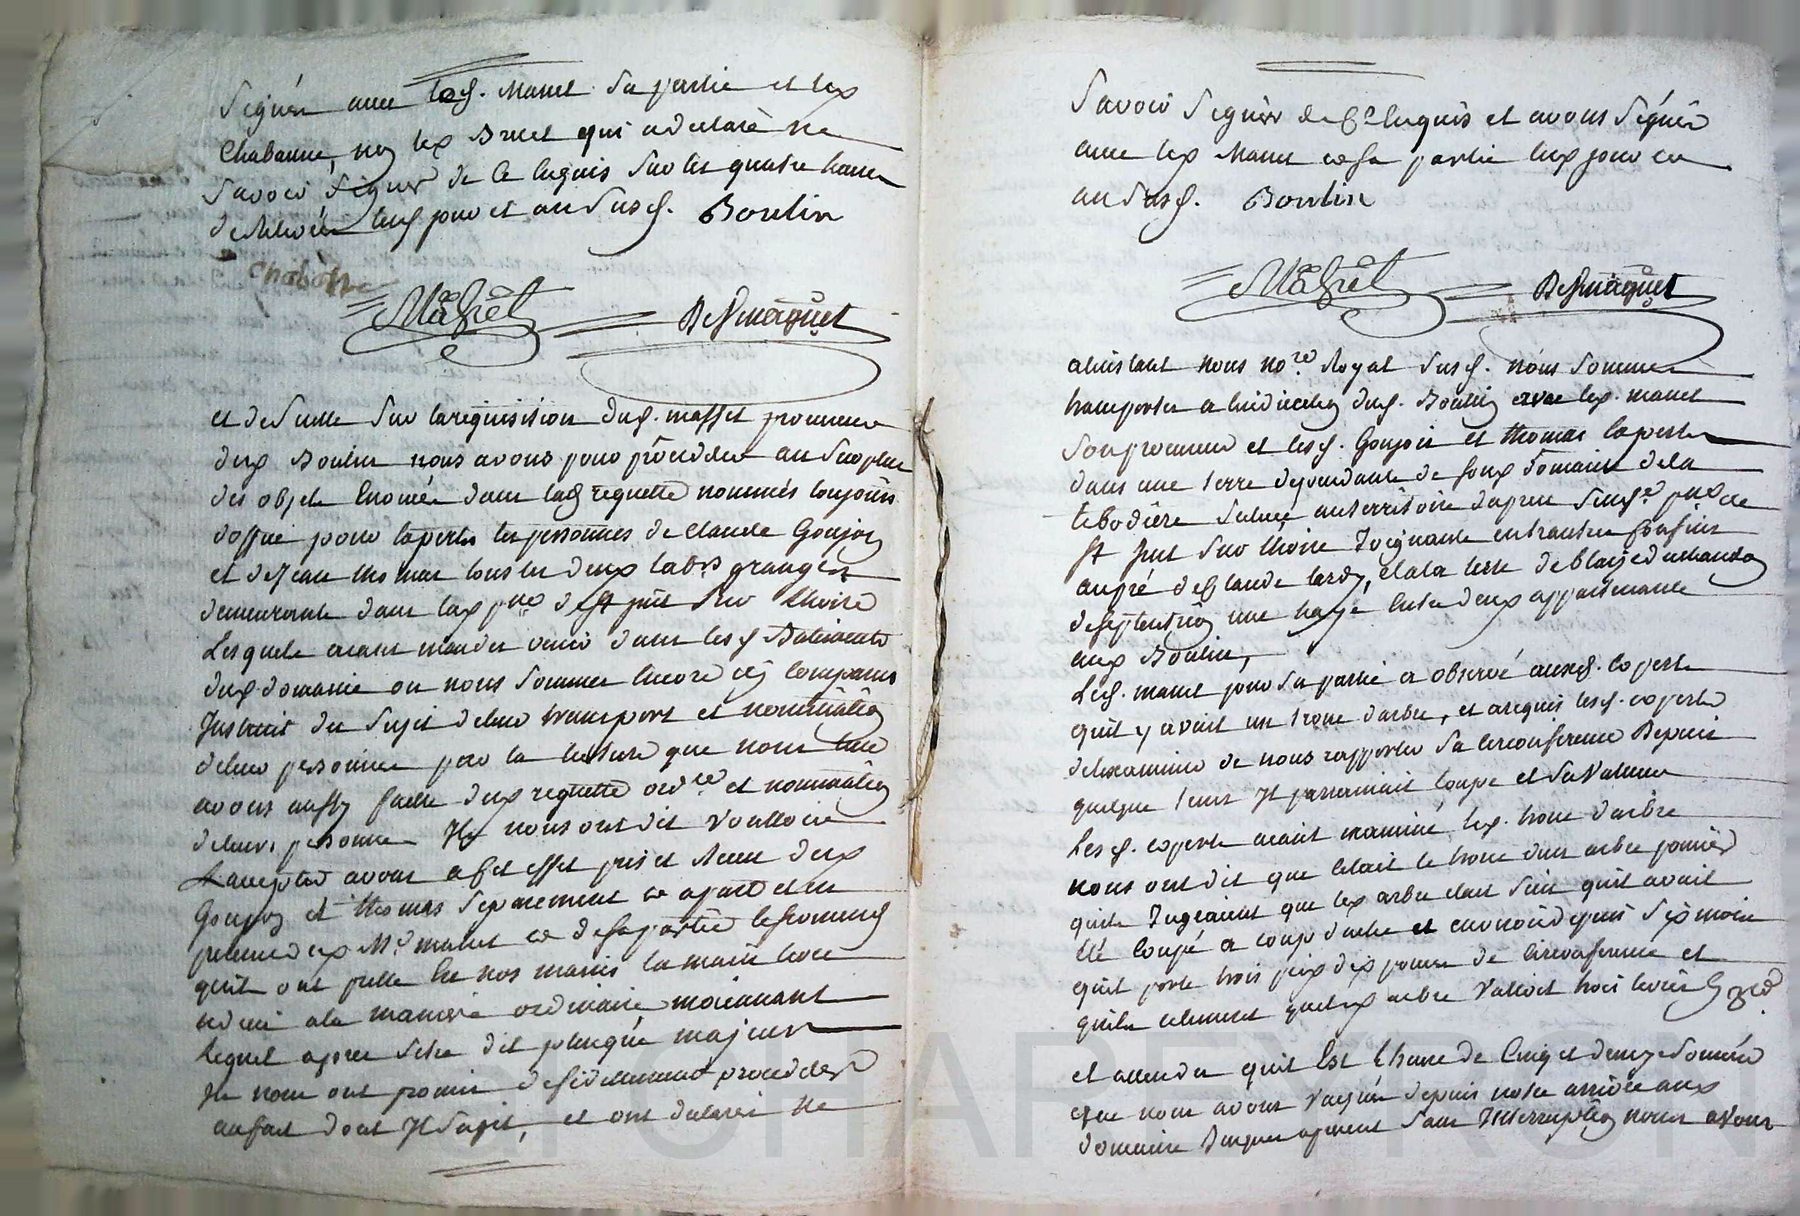 Signés avec led. Manet sa partie et led
Chabanne, non led Bruet qui a declaré ne
savoir signer de ce enquis sur les quatre heures
de relevée lesd jour et an susd. Boulin
Chabanne
Mâgnet Desmarquet
et de suitte sur la requisition dud. masset procureur
dud Boulin nous avons pour proceder au surplus
des objets enoncés dans lad requette nommés toujours
d'office pour experts les personnes de Claude Goujon
et de Jean thomas tous les deux labrs grangers
demeurants dans lad psse de st just sur Loire
Lesquels aiant mandés venir dans lesd Batiments
dud domaine ou nous sommes encore ils comparus
Instruits du sujet de leur transport et nomination
de leurs personnes par la lecture que nous leur
avons aussy faitte dud requette ordce et nomination
de leurs personnes Ils nous ont dit voulloir
L'accepter avons a cet effet pris et Receu desd
Goujon et thomas separement et apart et en
presence dud Me manet et de sa partie le serment
quils ont presté en nos mains la main levée
a dieu a la maniere ordinaire moienant
lequel apres s'etre dit plus que majeurs
Ils nous ont promis de fidellement proceder
au fait dont Il s'agit, et ont declaré ne
Savoir signer de ce enquis et avons signés
avec led Manet et sa partie lesd jour et
an susd. Boulin
Mâgnet Desmarquet
a l'instant nous nore Royal susd. nous sommes
transportés a l'indication dud. Boulin avec led. manet
son procureur et lesd. Goujon et thomas experts
dans une terre dependante de son domaine de la
Bodiere situé au territoire psse de
st Just sur Loire Joignante
au pré de Claude tardy, et a la terre de Blaize
de septentrion une haye entre deux appartenante
aud Boulin,
Led. manet pour sa partie a observé auxd. experts
quil y avait un tronc d'arbre, et a requis lesd. experts
de l'examiner de nous rapporter sa circonference Depuis
quelque tems Il paraissait coupé et sa valleur
Lesd. experts aiant examiné led. tronc d'arbre
nous ont dit que c'etait le tronc d'un arbre
quils Jugeaient que led arbre etait sain quil avait
été coupé a coup d'ache et environ depuis six mois
quil porte trois pieds dix pouces de circonference et
quils estiment que led arbre valloit trois livres
et attendu quil Est l'heure de Cinq et demy sonnée
que nous avons vacqués depuis notre arrivée aud
domaine sans Interruption nous avons